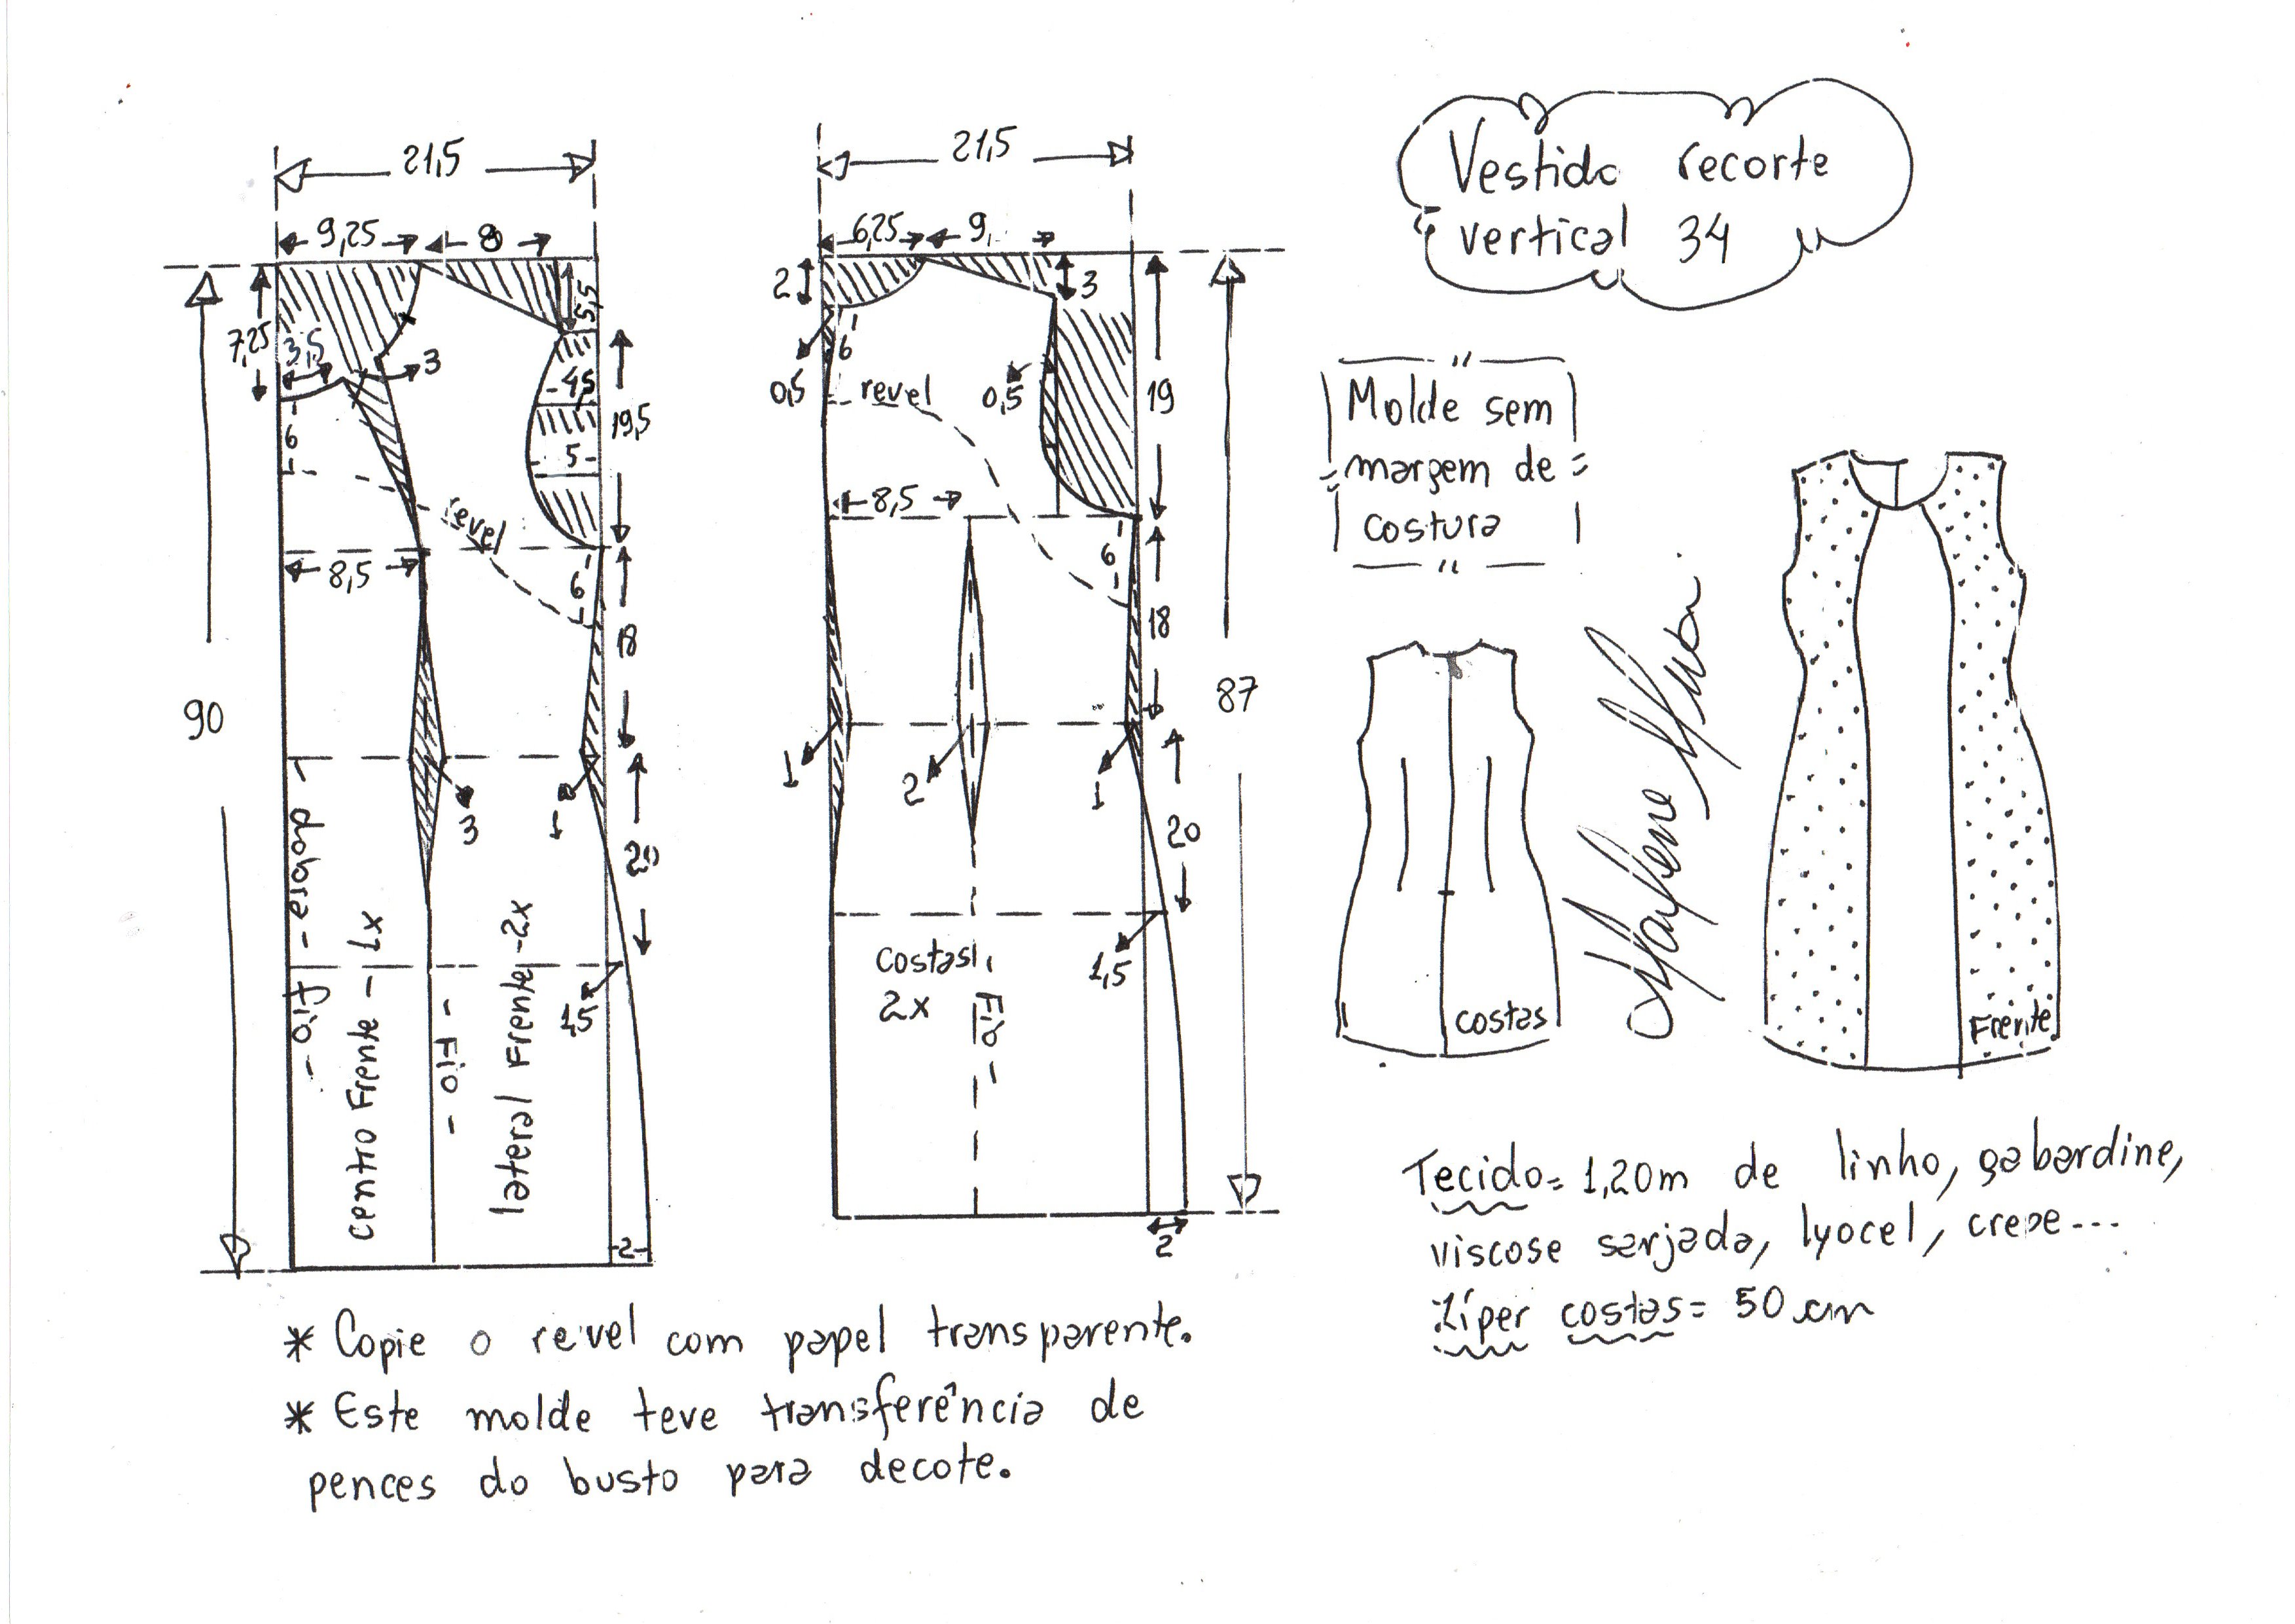 Vestido recorte
vertical 34
Molde sem
margem de
costura
21,5
9,25
8
7,25
3,5
3
5,5
4,5
5
19,5
6
revel
8,5
6
18
90
3
1
20
dobra - Fio -
centro Frente - 1x
- Fio -
lateral Frente - 2x
1,5
2
21,5
6,25
9
2
3
6
0,5
revel
0,5
19
8,5
6
18
87
1
2
1
20
Costas
2x
Fio -
1,5
2
costas
Frente
Tecido = 1,20m de linho, gabardine,
viscose sarjada, lyocel, crepe ...
Zíper costas = 50 cm
* Copie o revel com papel transparente.
* Este molde teve transferência de
pences do busto para decote.